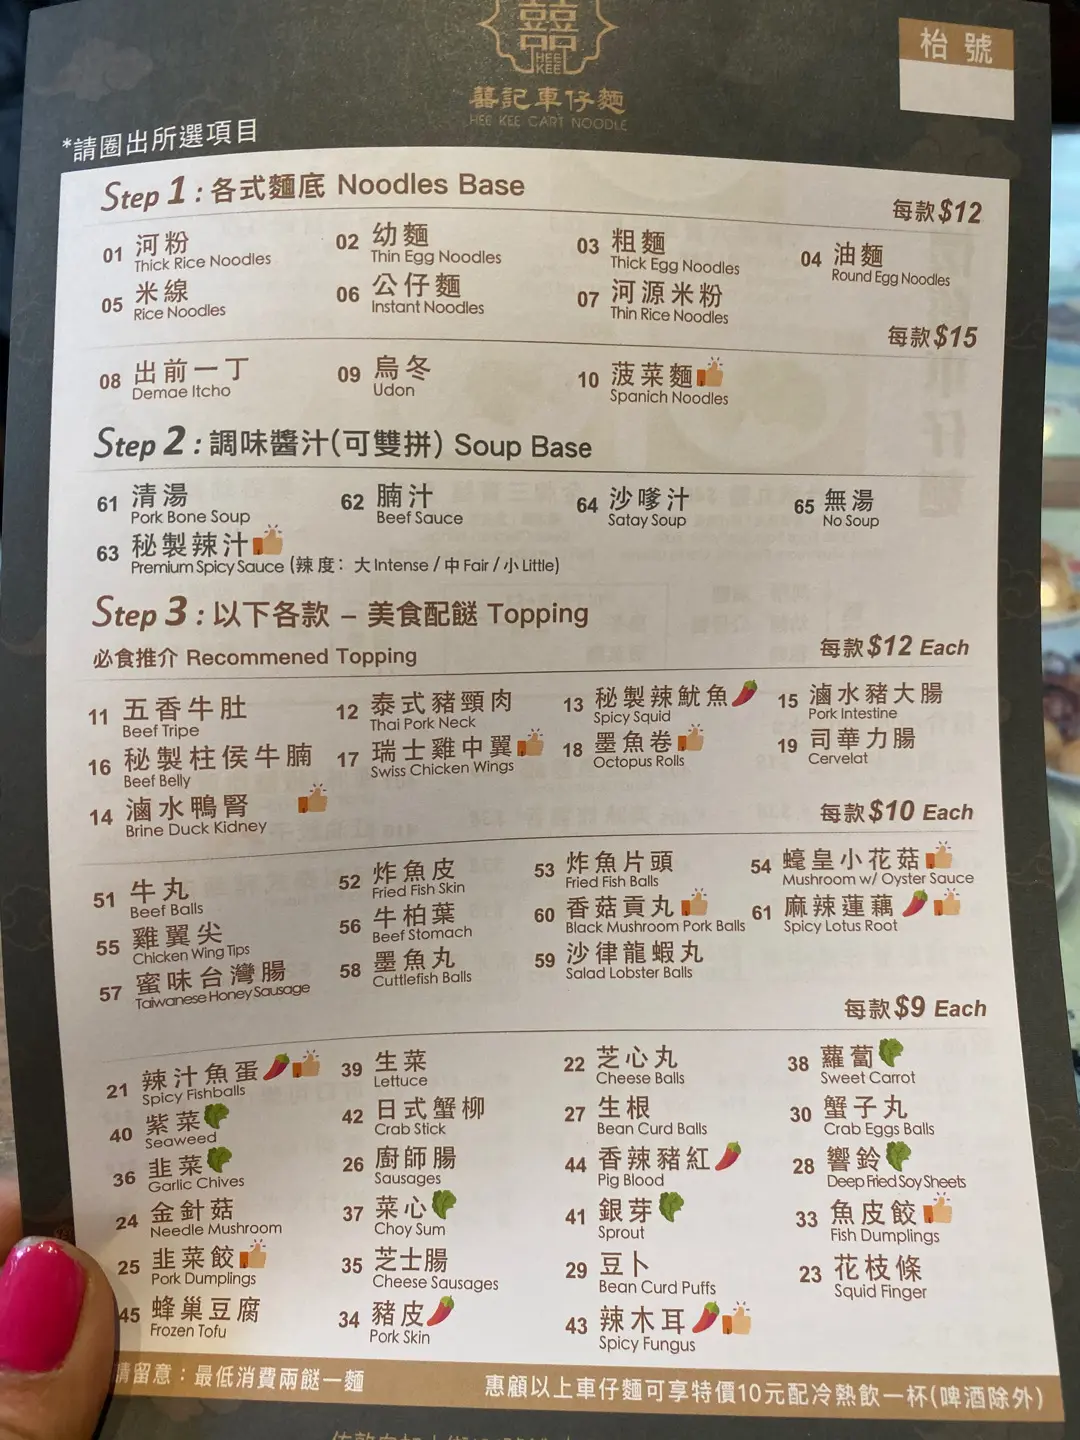 囍
HEE
KEE
囍記車仔麵
HEE KEE CART NOODLE
枱號
*請圈出所選項目
Step 1 : 各式麵底 Noodles Base
每款$12
01 河粉 Thick Rice Noodles
02 幼麵 Thin Egg Noodles
03 粗麵 Thick Egg Noodles
04 油麵 Round Egg Noodles
05 米線 Rice Noodles
06 公仔麵 Instant Noodles
07 河源米粉 Thin Rice Noodles
每款$15
08 出前一丁 Demae Itcho
09 烏冬 Udon
10 菠菜麵 Spanich Noodles
Step 2 : 調味醬汁(可雙拼) Soup Base
61 清湯 Pork Bone Soup
62 腩汁 Beef Sauce
64 沙嗲汁 Satay Soup
65 無湯 No Soup
63 秘製辣汁 Premium Spicy Sauce (辣度：大 Intense / 中 Fair / 小 Little)
Step 3 : 以下各款 – 美食配餸 Topping
必食推介 Recommened Topping
每款$12 Each
11 五香牛肚 Beef Tripe
12 泰式豬頸肉 Thai Pork Neck
13 秘製辣魷魚 Spicy Squid
15 滷水豬大腸 Pork Intestine
16 秘製柱侯牛腩 Beef Belly
17 瑞士雞中翼 Swiss Chicken Wings
18 墨魚卷 Octopus Rolls
19 司華力腸 Cervelat
14 滷水鴨腎 Brine Duck Kidney
每款$10 Each
51 牛丸 Beef Balls
52 炸魚皮 Fried Fish Skin
53 炸魚片頭 Fried Fish Balls
54 蠔皇小花菇 Mushroom w/ Oyster Sauce
55 雞翼尖 Chicken Wing Tips
56 牛柏葉 Beef Stomach
60 香菇貢丸 Black Mushroom Pork Balls
61 麻辣蓮藕 Spicy Lotus Root
57 蜜味台灣腸 Taiwanese Honey Sausage
58 墨魚丸 Cuttlefish Balls
59 沙律龍蝦丸 Salad Lobster Balls
每款$9 Each
21 辣汁魚蛋 Spicy Fishballs
39 生菜 Lettuce
22 芝心丸 Cheese Balls
38 蘿蔔 Sweet Carrot
40 紫菜 Seaweed
42 日式蟹柳 Crab Stick
27 生根 Bean Curd Balls
30 蟹子丸 Crab Eggs Balls
36 韭菜 Garlic Chives
26 廚師腸 Sausages
44 香辣豬紅 Pig Blood
28 響鈴 Deep Fried Soy Sheets
24 金針菇 Needle Mushroom
37 菜心 Choy Sum
41 銀芽 Sprout
33 魚皮餃 Fish Dumplings
25 韭菜餃 Pork Dumplings
35 芝士腸 Cheese Sausages
29 豆卜 Bean Curd Puffs
23 花枝條 Squid Finger
45 蜂巢豆腐 Frozen Tofu
34 豬皮 Pork Skin
43 辣木耳 Spicy Fungus
請留意：最低消費兩餸一麵
惠顧以上車仔麵可享特價10元配冷熱飲一杯(啤酒除外)